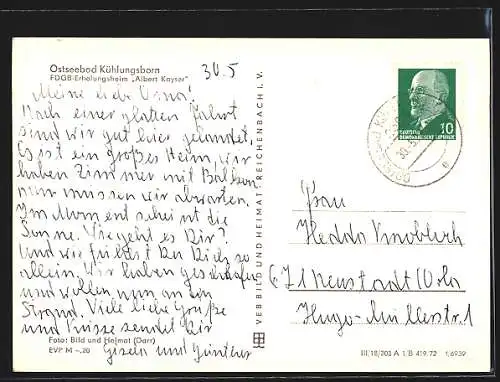 Ostseebad Kühlungsborn
FDGB-Erholungsheim „Albert Kayser"
30.5
Meine liebe Oma!
Nach einer glatten Fahrt
sind wir gut hier gelandet.
Es ist ein großes Heim, wir
haben Zimmer mit Balkon
nun müssen wir abwarten.
Im Moment scheint die
Sonne. Wie geht es Dir?
Und wie fühlst Du Dich so
allein. Wir haben geschlafen
und wollen nun an den
Strand. Viele liebe Grüße
und Küsse sendet Dir
Gisela und Günther
Foto: Bild und Heimat (Darr)
EVP M –,20
VEB BILD UND HEIMAT REICHENBACH I. V.
10
DEUTSCHE DEMOKRATISCHE REPUBLIK
Frau
Hedda Knoblech
671 Neustadt/Orla
Hugo-Müllerstr. 1
III/18/203 A 1/B 419/72 1/6939